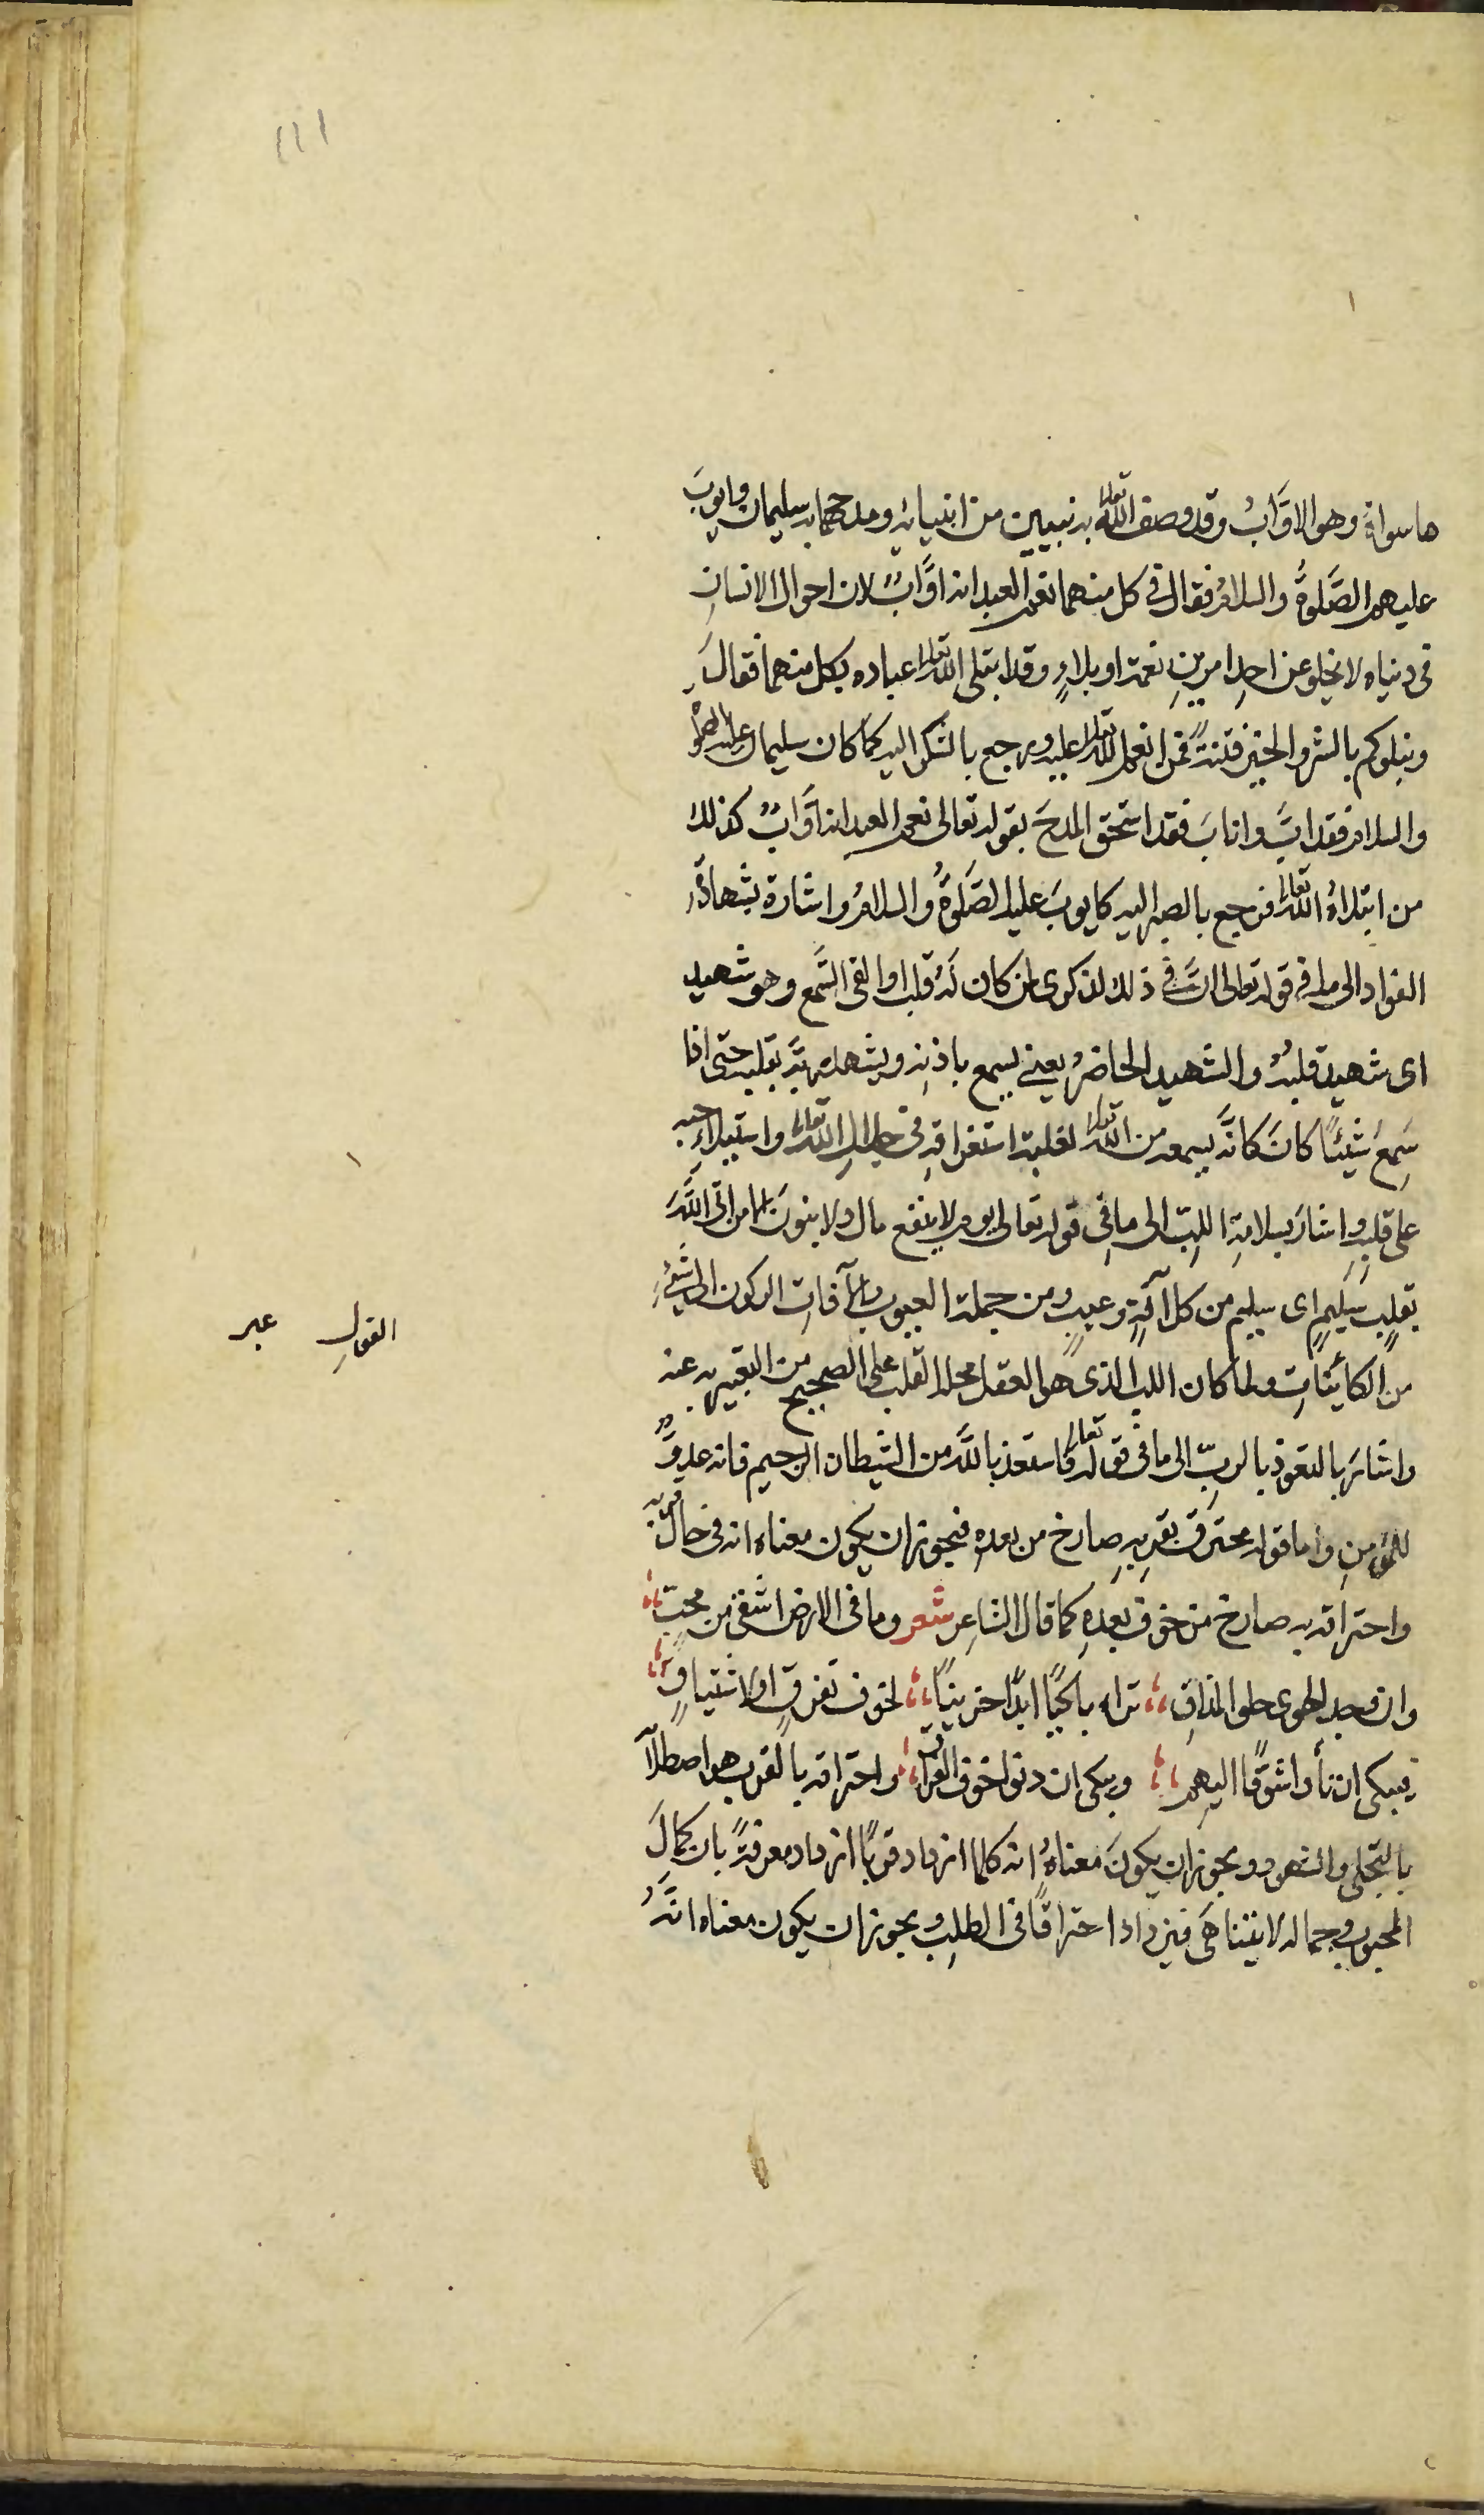 ١١٤
ما سواه وهو الاوَّابُ وقد وصف الله تعالى به نبيين من انبيائه ومدحهما به سليمان وايوبَ
عليهما الصَّلوةُ والسلامُ فقال فى كل منهما نعم العبد انه اوَّابٌ لان احوال الانسانِ
فى دنياه لا يخلو عن احدِ امرينِ نعمة او بلاءٍ وقد ابتلى الله تعالى عباده بكل منهما فقالَ
ونبلوكم بالشر والخير فتنةً فمن انعم الله تعالى عليه ورجع بالشكر اليه كما كان سليمان عليه الصلوة
والسلام فقد ابَّ وانابَ فقد استحق المدحَ بقوله تعالى نعم العبد انه اوَّابٌ كذلك
من ابتلاهُ الله تعالى فرجع بالصبر اليه كايوبَ عليه الصَّلوةُ والسلامُ واشارة بشهادةِ
الفواد الى ما فى قوله تعالى انَّ فى ذلك لذكرى لمن كان لَهُ قلب او القى السَّمع وهو شهيد
اى شهيد قلبُهُ والشهيد الحاضرُ يعنى يسمع باذنِهِ ويشهد ربَّه بقلبه حتى اذا
سَمِعَ شيئًا كانَ كانَّه يسمعه من الله تعالى لغلبة استغراقهِ فى جلالِ الله تعالى واستيلاءِ حبه
على قلبِهِ واشارَ بسلامةِ اللبِّ الى ما فِى قوله تعالى يوم لا ينفع مال ولا بنونَ الا من اتى اللَّهَ
بقلبٍ سَلِيمٍ اى سليم من كل آفةٍ وعيبٍ ومن جملة العيوب والآفاتِ الركون الى شىءٍ
من الكائناتِ ولما كان اللب الذى هو العقل محله القلب على الصحيح من التعبير به عنه
القولِ عبر
واشارَ بالتعوذِ بالربِّ الى ما فى قوله تعالى فاستعذ باللَّه من الشيطان الرجيم فانه عدوٌّ
للمؤمنِ واما قوله محترَق بقربِهِ صارخ من بعدِهِ فيجوز ان يكون معناه انه فى حال قربه
واحتراقه به صارخ من خوف بعدِهِ كما قال الشاعِر شعر وما فى الارض اشقى من محبٍّ
وان وجد الهوى حلو المذاقِ تراه باكيًا ابدًا حزينًا لخوف تفرقٍ او لاشتياقٍ
فيبكى ان نأوا شوقًا اليهم ويبكى ان دنوا خوف الفراق واحتراقه بالقرب هو اصطلآ
بالتجلى والشهود ويجوز ان يكونَ معناهُ انه كلما ازداد قربًا ازداد معرفةً بان كمالَ
المحبوب وجماله لا يتناهَى فيزداد احتراقًا فى الطلبِ ويجوز ان يكون معناه انَّهُ